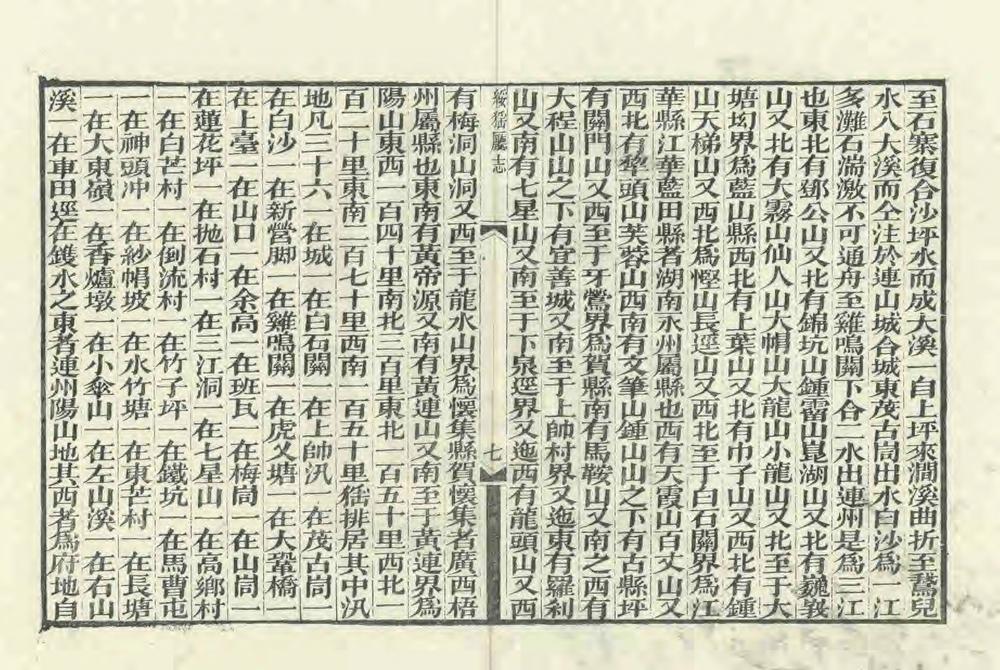 至石寨復合沙坪水而成大溪一自上坪來澗溪曲折至鵞兒
水入大溪而仝注於連山城合城東茂古峝出水白沙爲一江
多灘石湍激不可通舟至雞鳴關下合二水出連州是爲三江
也東北有鄧公山又北有錦坑山鍾霤山崑湖山又北有巍峩
山又北有大霧山仙人山大帽山大龍山小龍山又北至于大
塘㘭界爲藍山縣西北有上葉山又北有巾子山又西北有鍾
山天梯山又西北爲慳山長逕山又西北至于白石關界爲江
華縣江華藍田縣者湖南永州屬縣也西有天霞山百丈山又
西北有犂頭山芙蓉山西南有文筆山鍾山山之下有古縣坪
有關門山又西至于牙鶯界爲賀縣南有馬鞍山又南之西有
大程山山之下有宜善城又南至于上帥村界又迤東有羅刹
山又南有七星山又南至于下泉逕界又迤西有龍頭山又西
綏猺廳志 七
有梅洞山洞又西至于龍水山界爲懷集縣賀懷集者廣西梧
州屬縣也東南有黃帝源又南有黃連山又南至于黃連界爲
陽山東西一百四十里南北三百里東北一百五十里西北一
百二十里東南二百七十里西南一百五十里猺排居其中汛
地凡三十六一在城一在白石關一在上帥汛一在茂古峝一
在白沙一在新營脚一在雞鳴關一在虎叉塘一在大鞏橋一
在上臺一在山口一在余高一在班瓦一在梅峝一在山峝一
在蓮花坪一在抛石村一在三江洞一在七星山一在高鄉村
一在白芒村一在倒流村一在竹子坪一在鐵坑一在馬曹屯
一在神頭冲一在紗帽坡一在水竹塘一在東芒村一在長塘
一在大東嶺一在香爐墩一在小傘山一在左山溪一在右山
溪一在車田逕在鑊水之東者連州陽山地其西者爲府地自